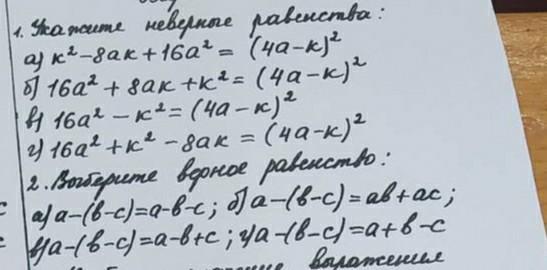 1. Укажите неверные равенства:
а) к² - 8ак + 16а² = (4а - к)²
б) 16а² + 8ак + к² = (4а - к)²
в) 16а² - к² = (4а - к)²
г) 16а² + к² - 8ак = (4а - к)²
2. Выберите верное равенство:
а) а - (в - с) = а - в - с; б) а - (в - с) = ав + ас;
в) а - (в - с) = а - в + с; г) а - (в - с) = а + в - с
выражения